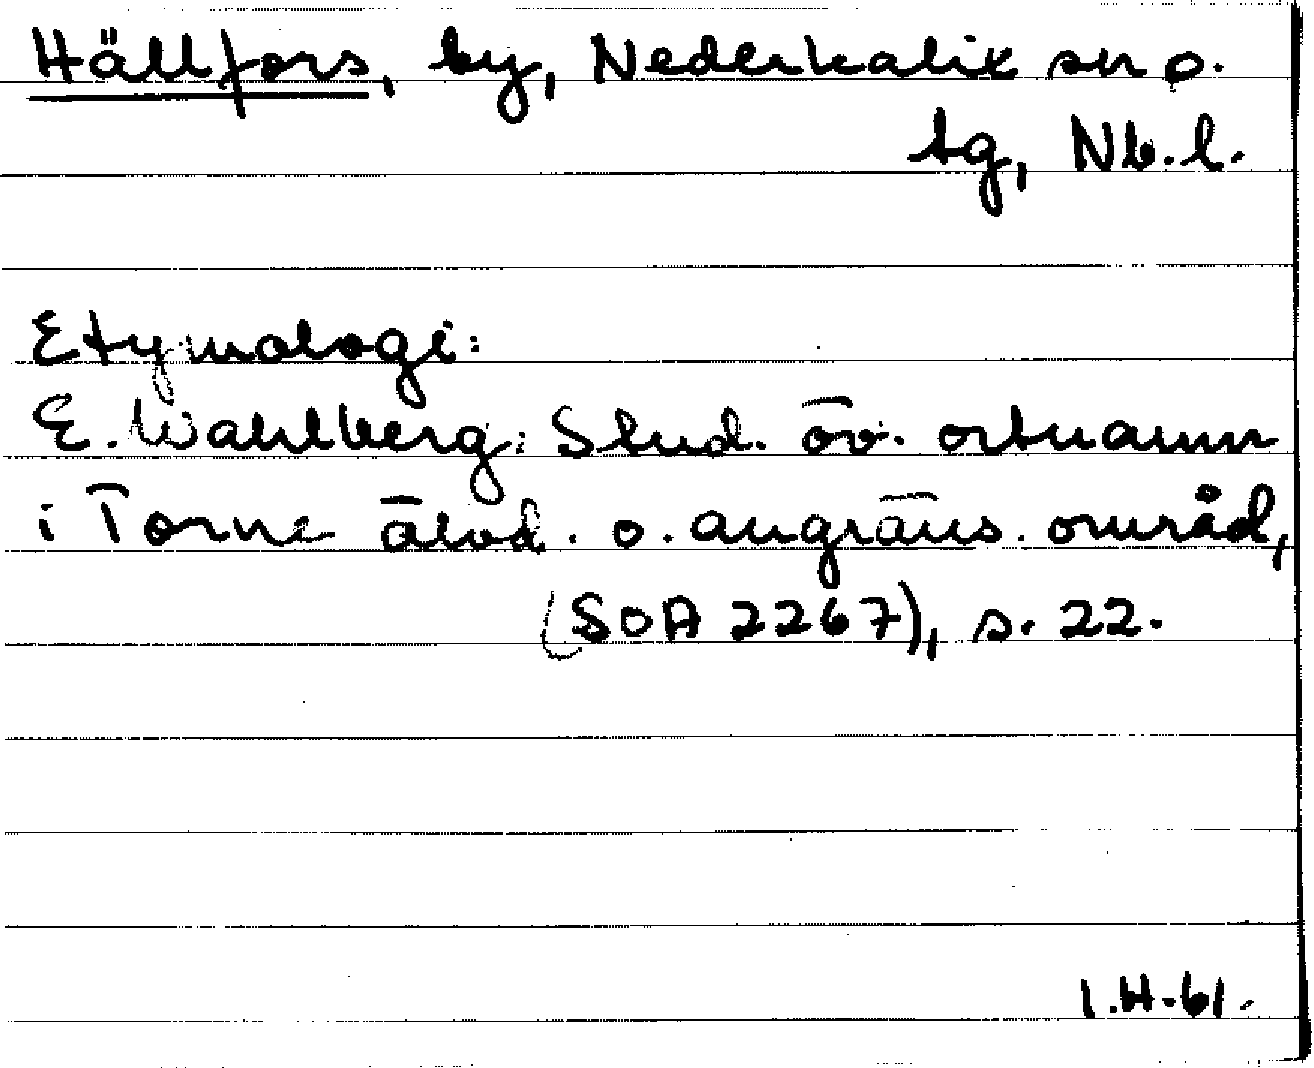 Hällfors, by, Nederkalix sn o.
tg, Nb.l.
Etymologi:
E. Wahlberg: Stud. öv. ortnamn
i Torne älvd. o. angräns. områd,
(SOA 2267), s. 22.
I.H-61.